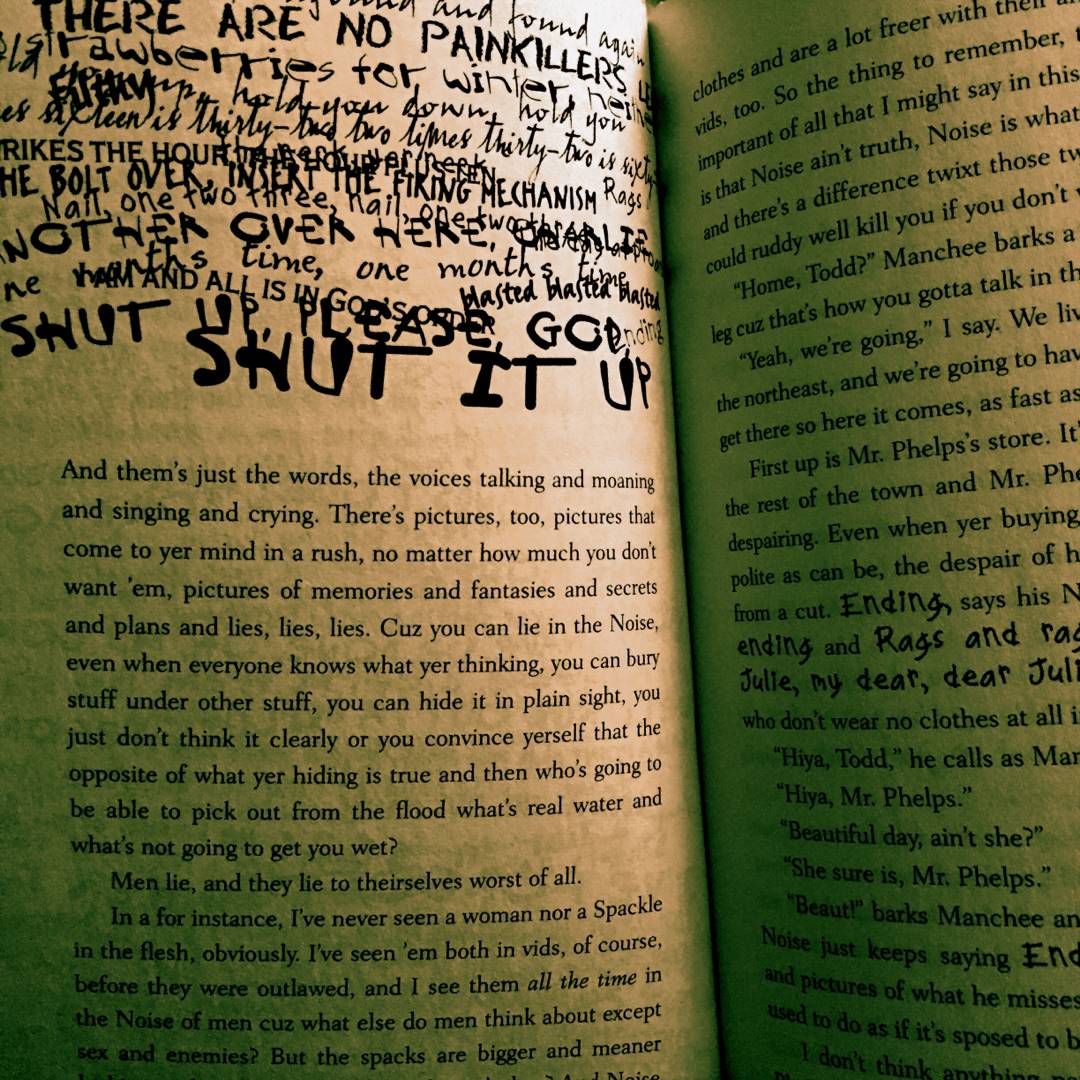 and found again
THERE ARE NO PAINKILLERS
strawberries for winter,
hold you down, hold you
sixteen is thirty-two two times thirty-two is
THE HOUR
THE BOLT OVER, INSERT THE FIRING MECHANISM Rags
Nail, one two three, nail, one two three
OVER HERE, CHARLIE
months time, one months time
I AM AND ALL IS IN GOD'S ORDER blasted blasted blasted
SHUT UP, PLEASE, GOD, Ending
SHUT IT UP
And them's just the words, the voices talking and moaning
and singing and crying. There's pictures, too, pictures that
come to yer mind in a rush, no matter how much you don't
want 'em, pictures of memories and fantasies and secrets
and plans and lies, lies, lies. Cuz you can lie in the Noise,
even when everyone knows what yer thinking, you can bury
stuff under other stuff, you can hide it in plain sight, you
just don't think it clearly or you convince yerself that the
opposite of what yer hiding is true and then who's going to
be able to pick out from the flood what's real water and
what's not going to get you wet?
Men lie, and they lie to theirselves worst of all.
In a for instance, I've never seen a woman nor a Spackle
in the flesh, obviously. I've seen 'em both in vids, of course,
before they were outlawed, and I see them all the time in
the Noise of men cuz what else do men think about except
sex and enemies? But the spacks are bigger and meaner
clothes and are a lot freer with their
vids, too. So the thing to remember,
important of all that I might say in this
is that Noise ain't truth, Noise is what
and there's a difference twixt those
could ruddy well kill you if you don't
"Home, Todd?" Manchee barks a
leg cuz that's how you gotta talk in
"Yeah, we're going," I say. We
the northeast, and we're going to
get there so here it comes, as fast as
First up is Mr. Phelps's store. It's
the rest of the town and Mr.
despairing. Even when yer buying
polite as can be, the despair of
from a cut. Ending, says his
ending and Rags and
Julie, my dear, dear
who don't wear no clothes at all
"Hiya, Todd," he calls as
"Hiya, Mr. Phelps."
"Beautiful day, ain't she?"
"She sure is, Mr. Phelps."
"Beaut!" barks Manchee
Noise just keeps saying
and pictures of what he misses
used to do as if it's sposed to
I don't think anything